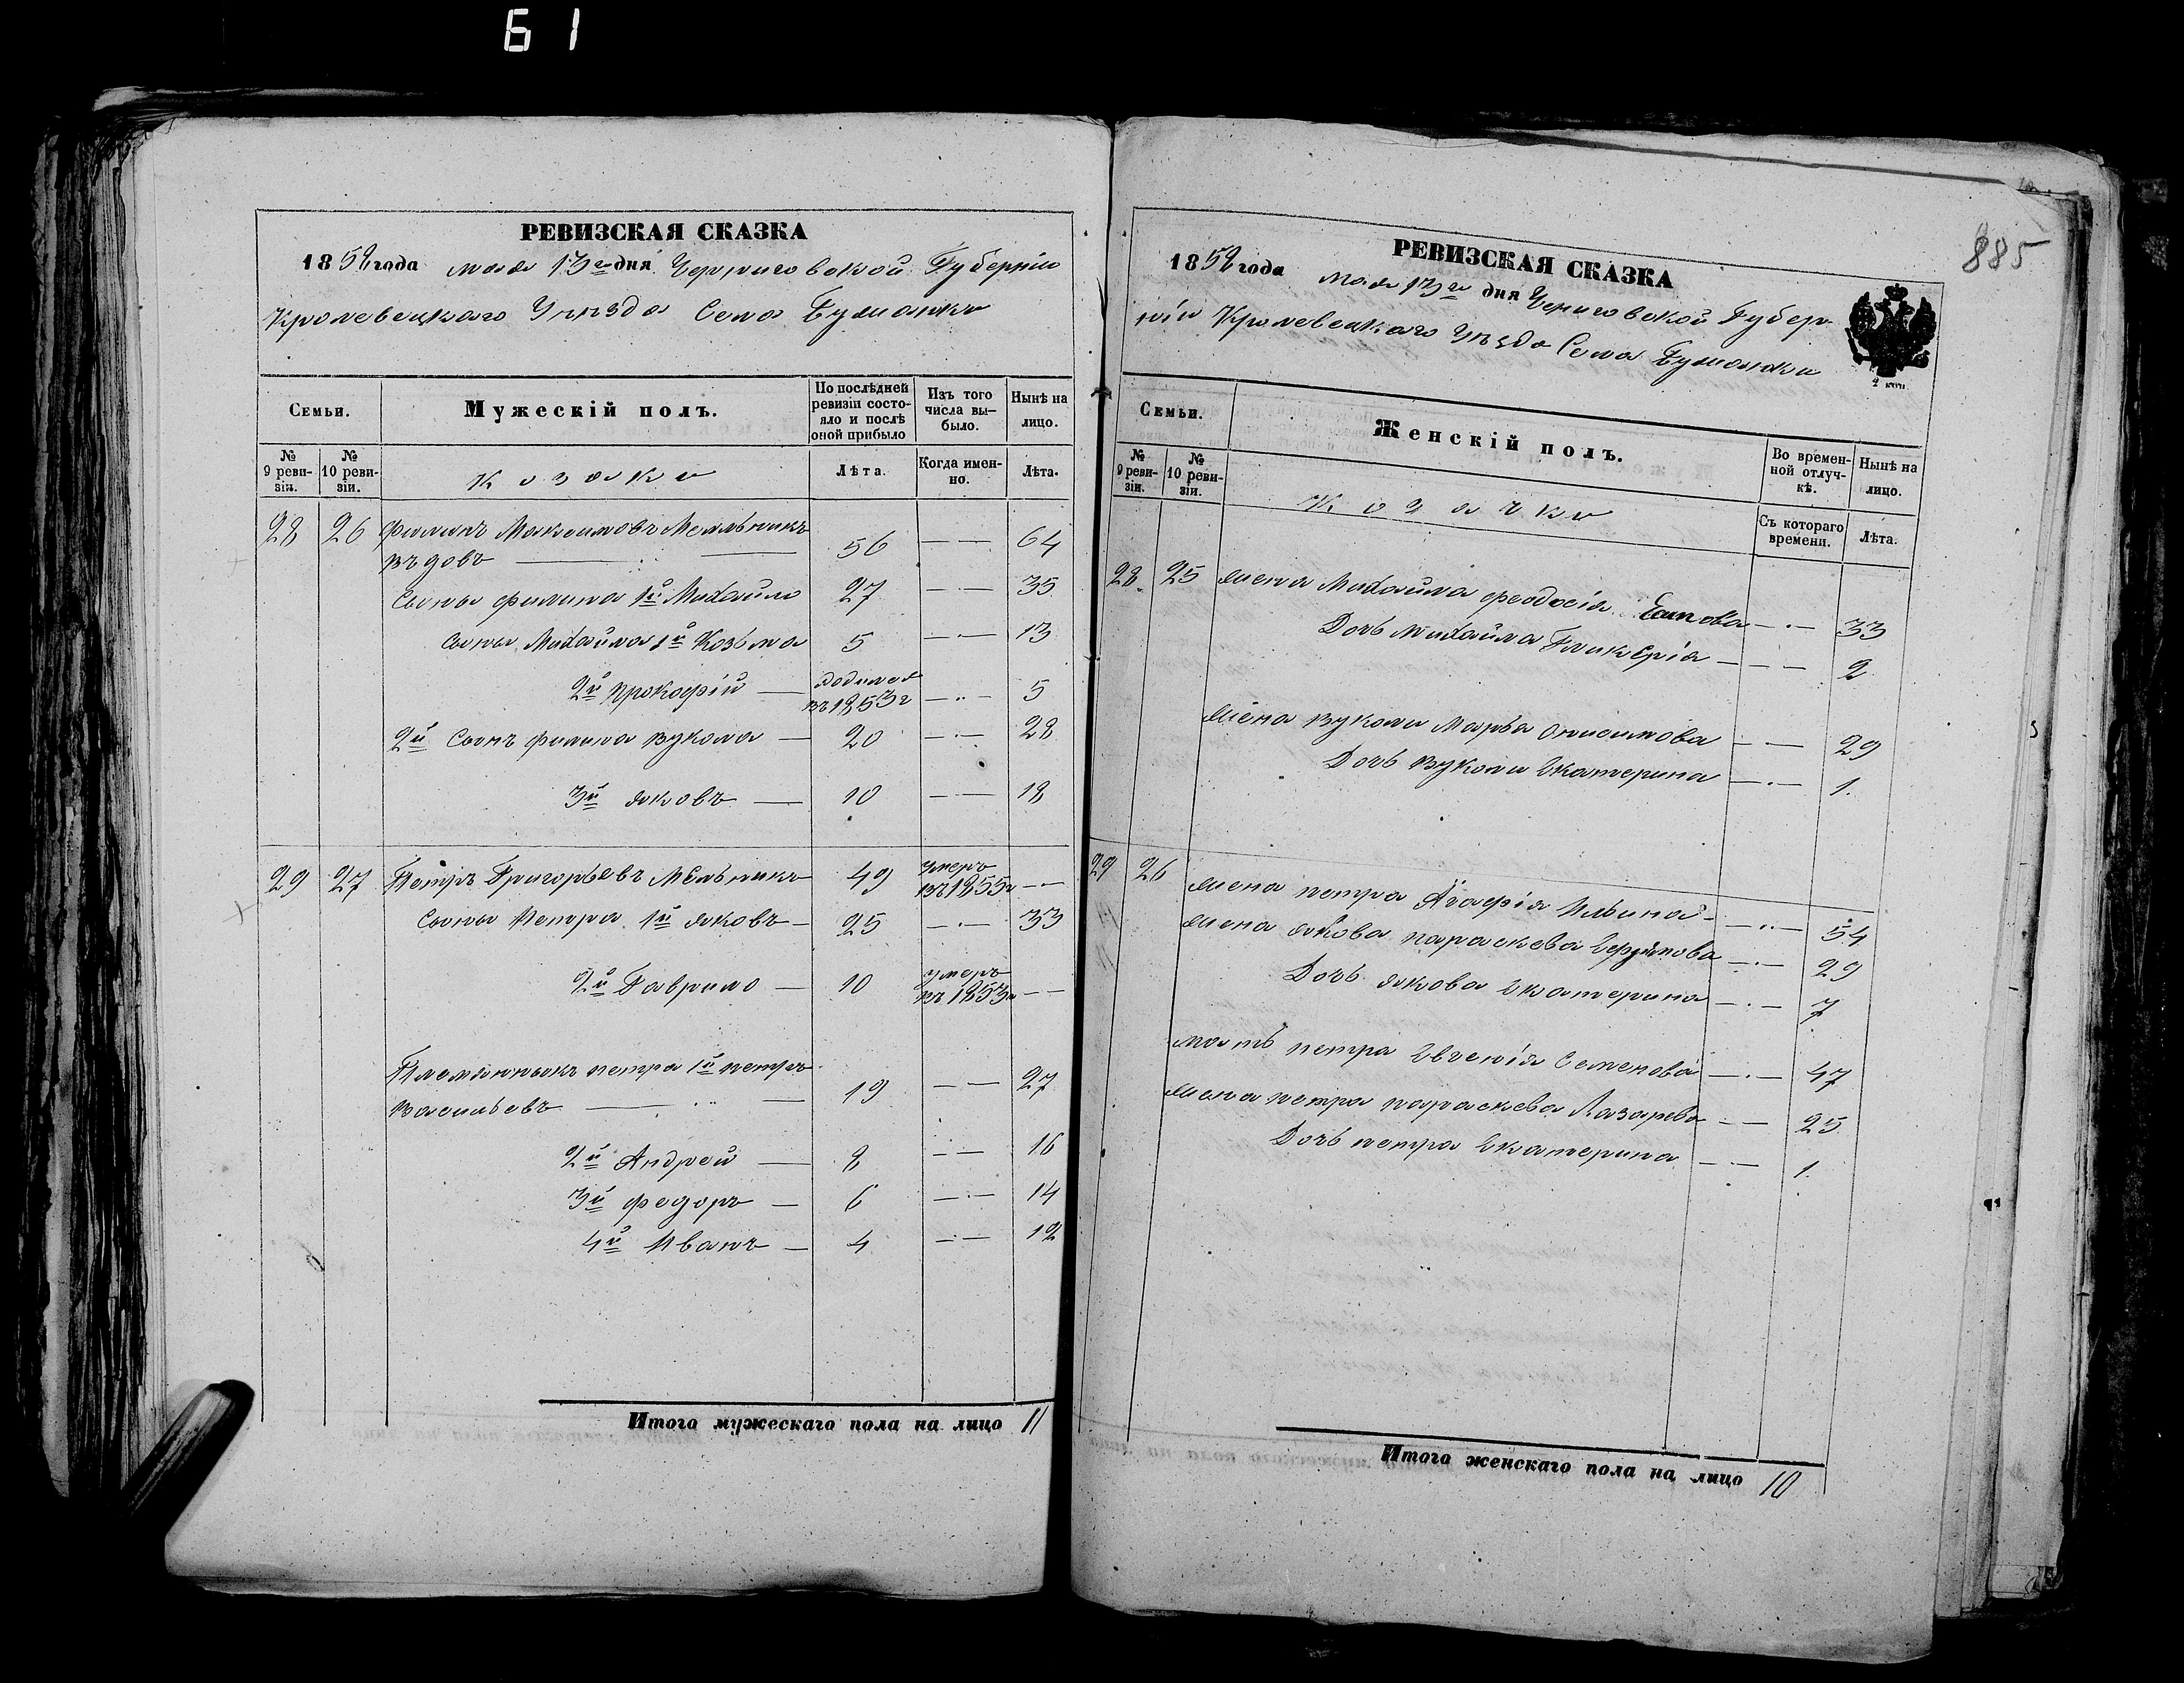 61
РЕВИЗСКАЯ СКАЗКА
1858 года мая 13го дня Черниговской Губерніи
Кролевецкаго Уѣзда Села
Семьи.
Мужескій полъ.
По послѣдней ревизіи состояло и послѣ оной прибыло
Изъ того числа выбыло.
Нынѣ на лицо.
№ 9 ревизіи.
№ 10 ревизіи.
Козаки
Лѣта.
Когда именно.
Лѣта.
28 26 Филипъ Максимовъ Мельникъ
вдовъ 56 64
Сыны Филипа 1й Михайло 27 35
Сыны Михайла 1й Козьма 5 13
2й Прокофій родился въ 1853г 5
2й Сынъ Филипа Вукола 20 28
3й Яковъ 10 18
29 27 Петръ Григорьевъ Мельникъ 49 умеръ въ 1855г
Сыны Петра 1й Яковъ 25 33
2й Гаврило 10 умеръ въ 1853г
Племянныкъ Петра 1й Петръ
Васильевъ 19 27
2й Андрей 8 16
3й Федоръ 6 14
4й Иванъ 4 12
Итого мужескаго пола на лицо 11
885
РЕВИЗСКАЯ СКАЗКА
1858 года мая 13го дня Черниговской Губер
ніи Кролевецкаго Уѣзда Села
2 коп.
Семьи.
Женскій полъ.
Во временной отлучкѣ.
Нынѣ на лицо.
№ 9 ревизіи.
№ 10 ревизіи.
Козачки
Съ котораго времени.
Лѣта.
28 25 Жена Михайла Феодосія 33
Дочь Михайла Гликерія 2
Жена Вуколы Марья Онисимова 29
Дочь Вуколы Екатерина 1.
29 26 Жена Петра Агафія Ильина 54
Жена Якова Параскева Ефимова 29
Дочь Якова Екатерина 7
Мать Петра Евгенія Семенова 47
Жена Петра Параскева Лазарева 25
Дочь Петра Екатерина 1.
Итого женскаго пола на лицо 10